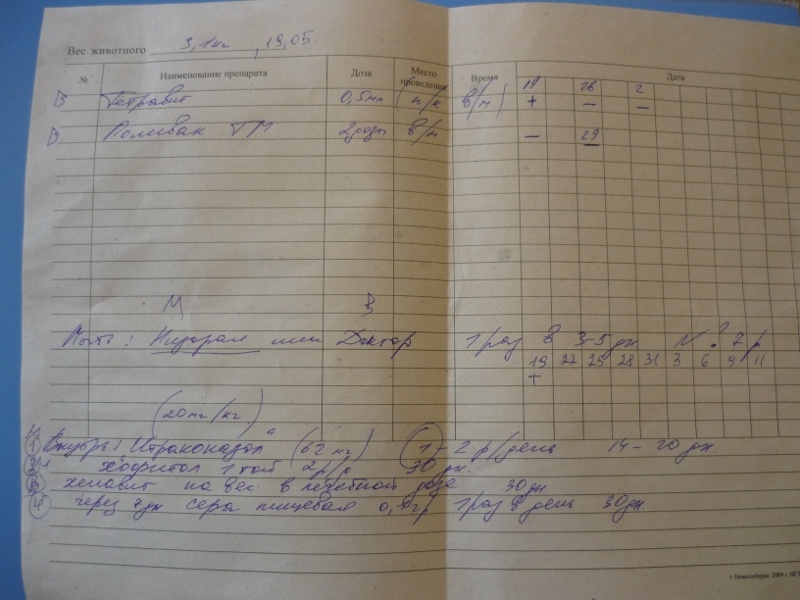 Вес животного 3,1кг, 19.05.
№ Наименование препарата Доза Место проведения Время Дата
19 26 2
Тетравит 0,5мл (п/к в/м) + — —
Поливак ТМ 2дозы в/м — 29
М В
Мыть: Низорал или Доктор 1 раз в 3-5 дн N? 7 р
19 22 25 28 31 3 6 9 11
+
(20мг/кг)
1 Внутрь! "Итраконазол" (62 мг) 1-2 р/день 14-20 дн.
2 хофитол 1 таб 2р/р 30 дн.
3 хеповит на вес в лечебной дозе 30дн
4 через 7дн сера пищевая 1раз в день 30дн
г. Новосибирск 2009 г.